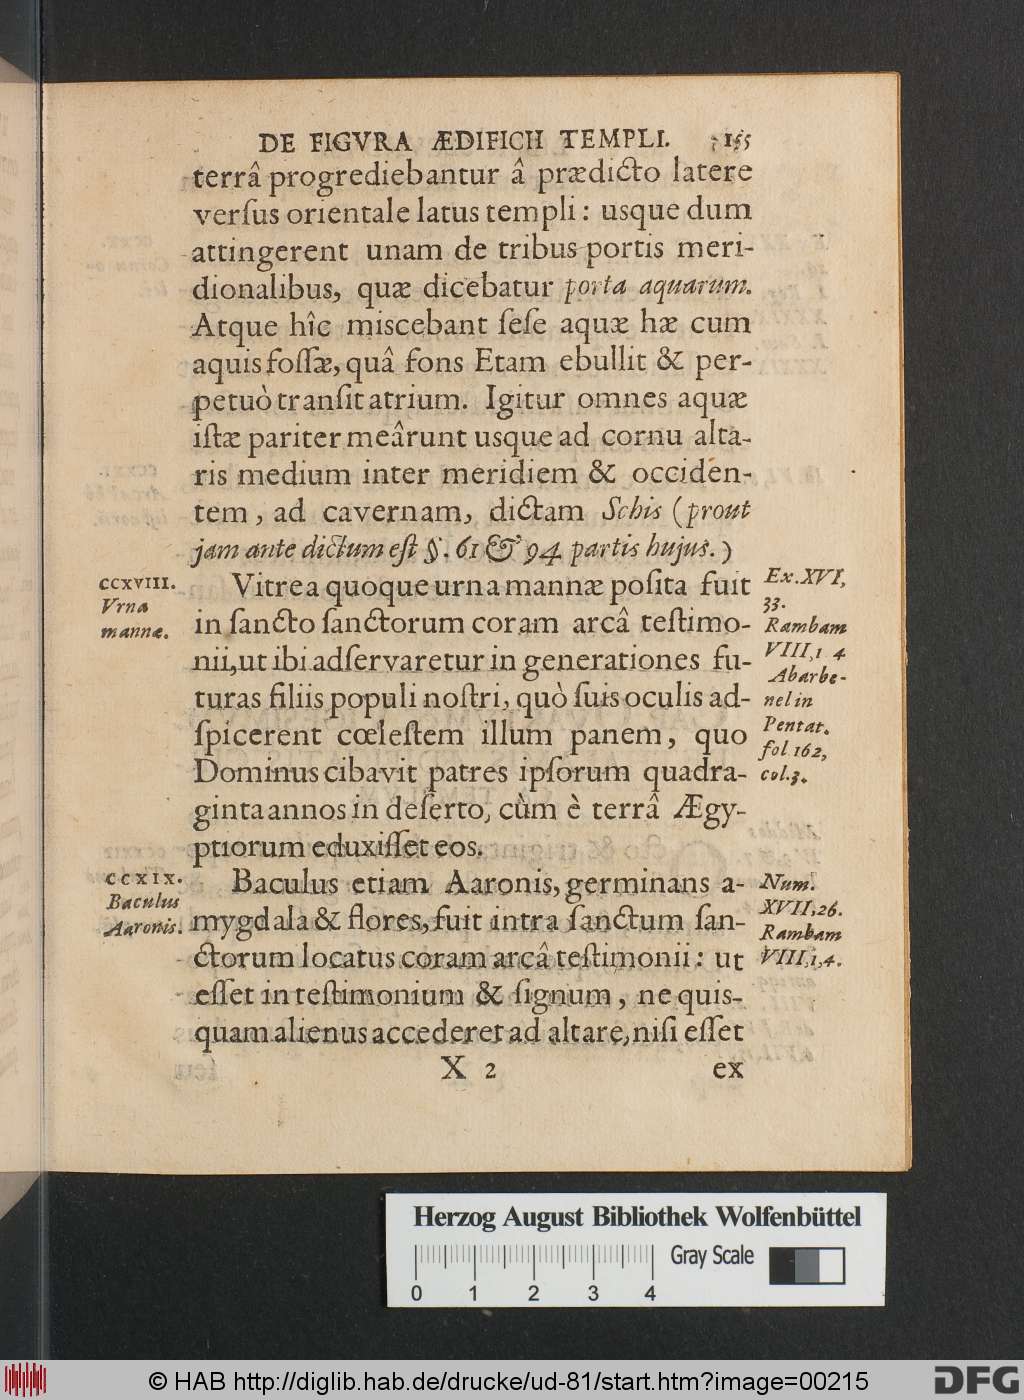 DE FIGVRA ÆDIFICII TEMPLI. 155
terrâ progrediebantur â prædicto latere
verſus orientale latus templi: usque dum
attingerent unam de tribus portis meri-
dionalibus, quæ dicebatur porta aquarum.
Atque hîc miscebant ſeſe aquæ hæ cum
aquis foſſæ, quâ fons Etam ebullit & per-
petuò tranſit atrium. Igitur omnes aquæ
iſtæ pariter meârunt usque ad cornu alta-
ris medium inter meridiem & occiden-
tem, ad cavernam, dictam Schis (prout
jam ante dictum eſt §. 61 & 94 partis hujus.)
CCXVIII.
Vrna
mannæ.
Vitrea quoque urna mannæ poſita fuit
in ſancto ſanctorum coram arcâ teſtimo-
nii, ut ibi adſervaretur in generationes fu-
turas filiis populi noſtri, quò ſuis oculis ad-
ſpicerent cœleſtem illum panem, quo
Dominus cibavit patres ipſorum quadra-
ginta annos in deſerto, cùm è terrâ Ægy-
ptiorum eduxiſſet eos.
Ex. XVI,
33.
Rambam
VIII, 1 4
Abarbe-
nel in
Pentat.
fol 162,
col.3.
CCXIX.
Baculus
Aaronis.
Baculus etiam Aaronis, germinans a-
mygdala & flores, fuit intra ſanctum ſan-
ctorum locatus coram arcâ teſtimonii: ut
eſſet in teſtimonium & ſignum, ne quis-
quam alienus accederet ad altare, niſi eſſet
Num.
XVII, 26.
Rambam
VIII, 1, 4.
X 2 ex
Herzog August Bibliothek Wolfenbüttel
Gray Scale
0 1 2 3 4
© HAB http://diglib.hab.de/drucke/ud-81/start.htm?image=00215
DFG